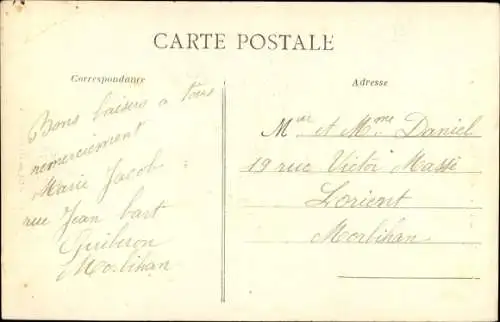 CARTE POSTALE
Correspondance
Bons baisers a tous
remerciement
Marie Jacob
rue Jean bart
Quiberon
Morbihan
Adresse
Mr et Mme Daniel
19 rue Victor Massé
Lorient
Morbihan